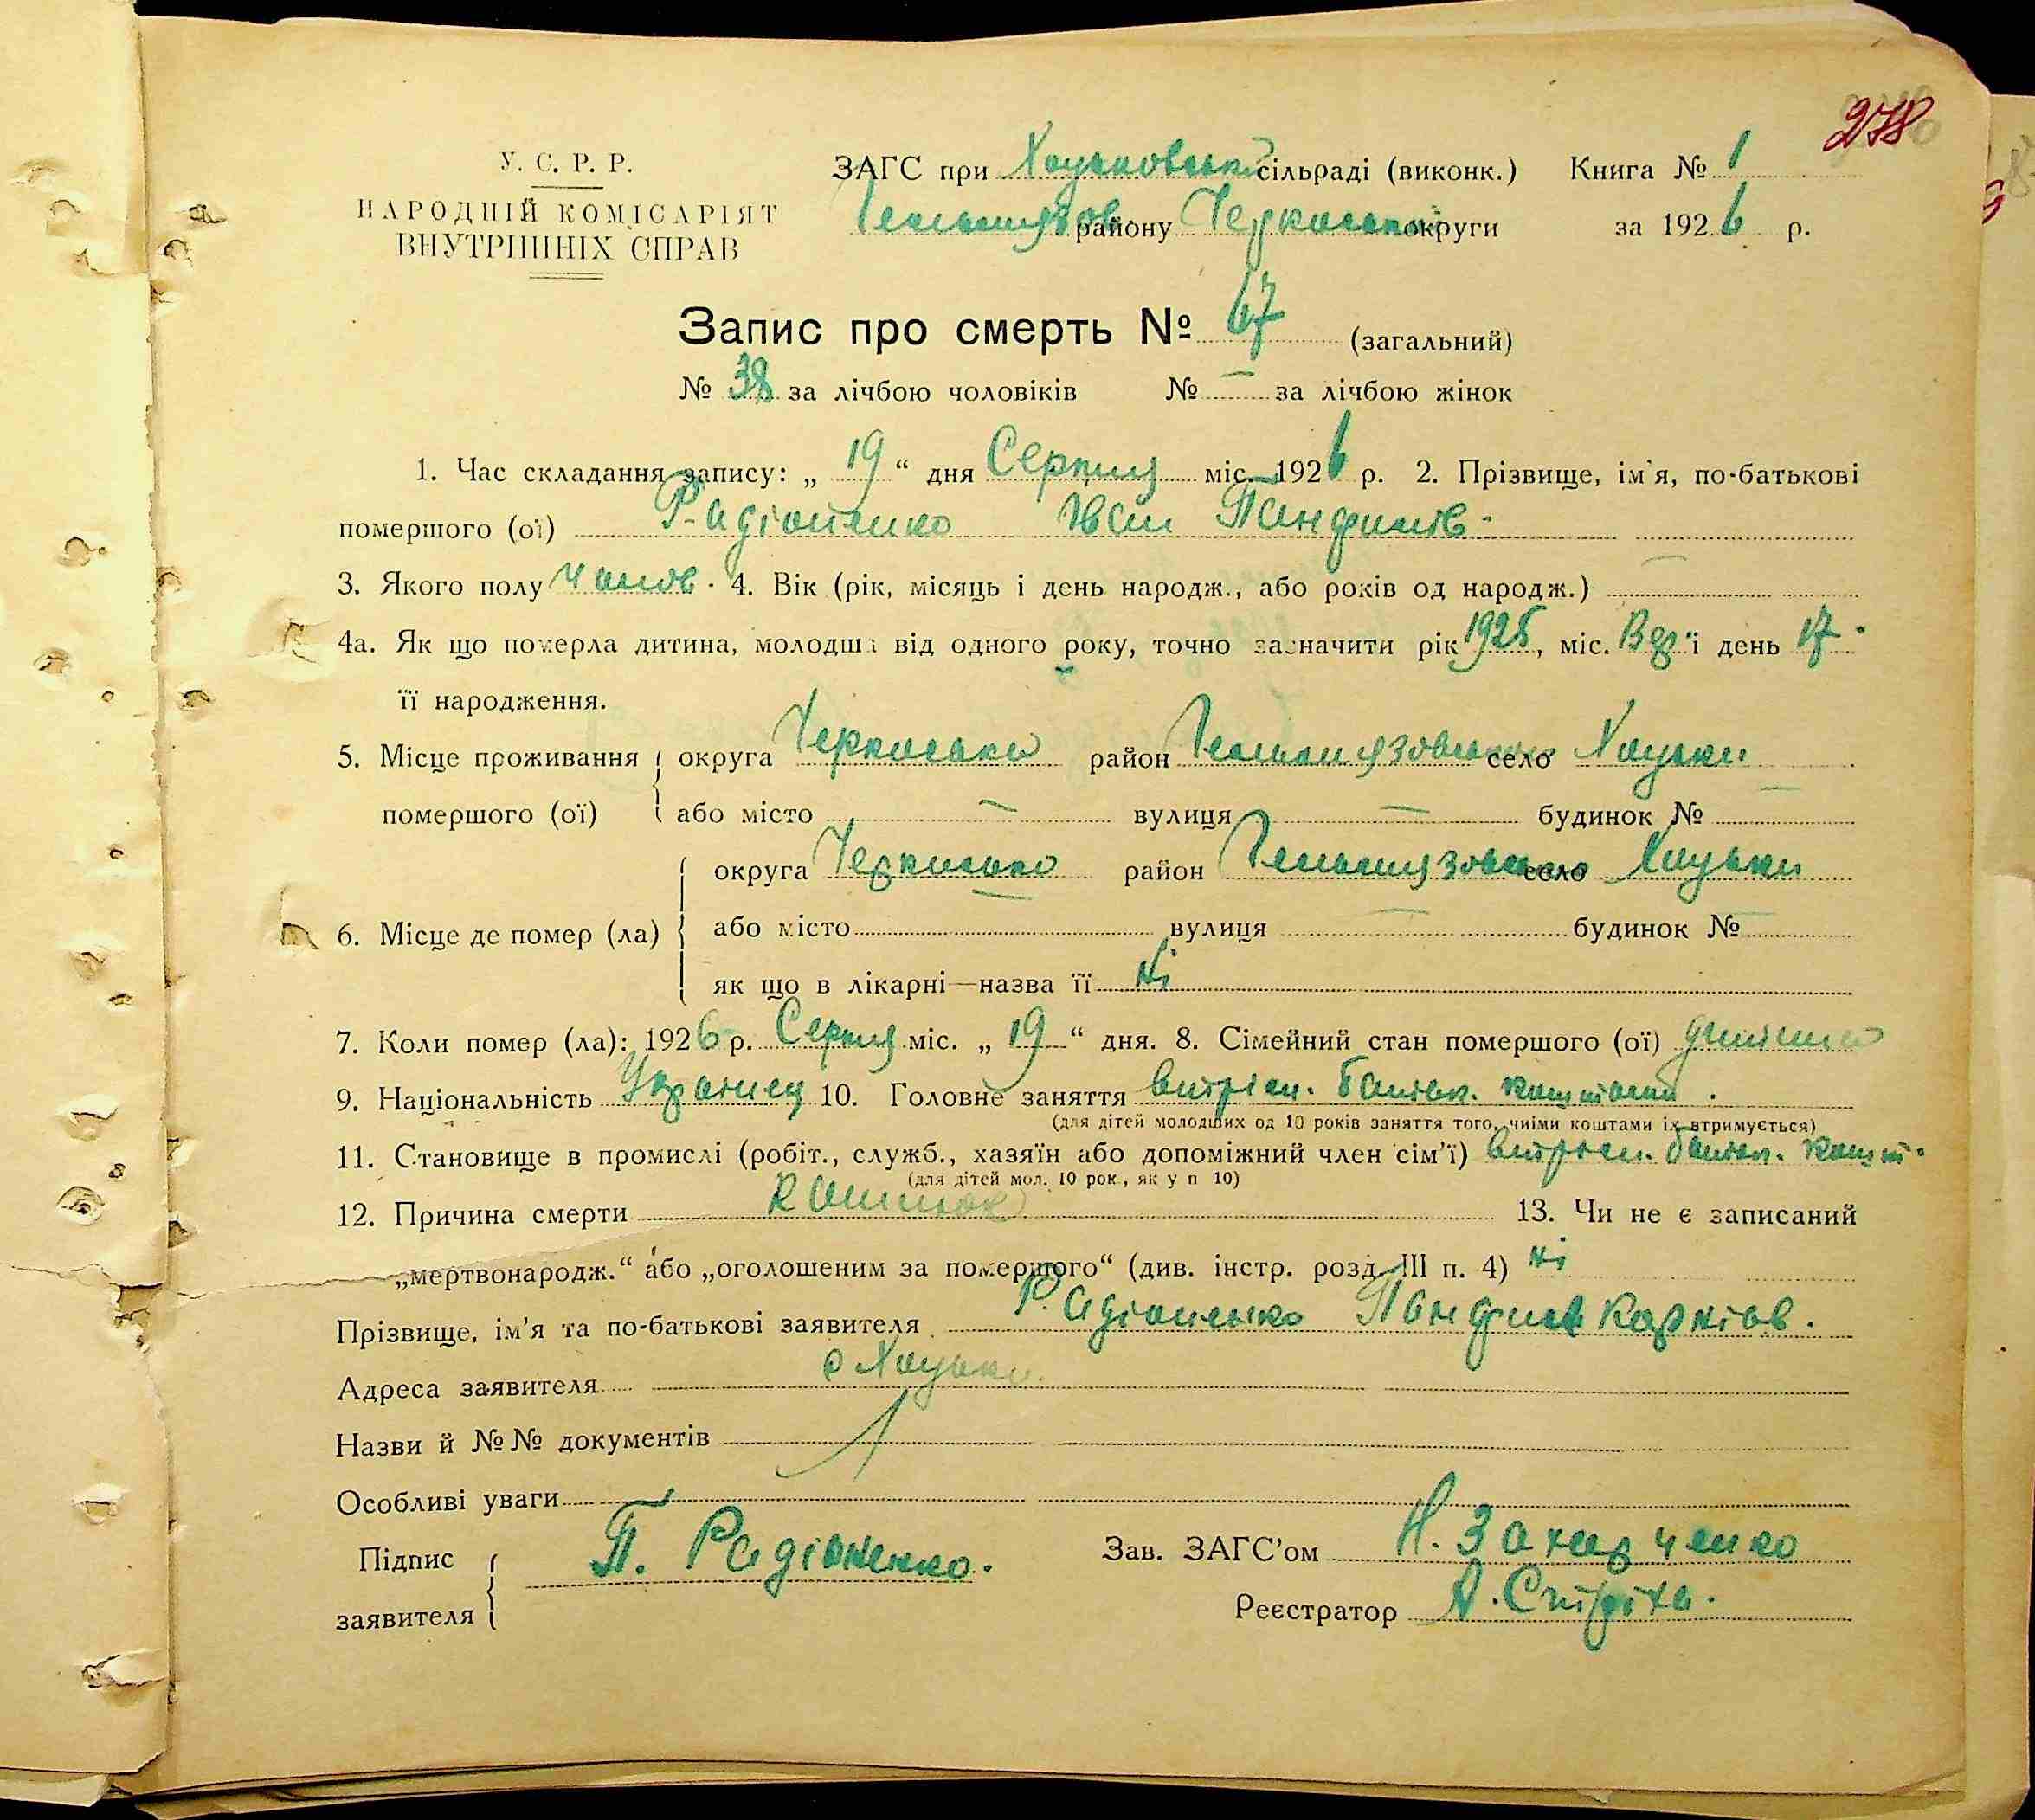 278
У. С. Р. Р.
НАРОДНІЙ КОМІСАРІЯТ
ВНУТРІШНІХ СПРАВ
ЗАГС при Хоцьковській сільраді (виконк.) Книга № 1
Гельмязов. району Черкаської округи за 1926 р.
Запис про смерть № 67 (загальний)
№ 38 за лічбою чоловіків № — за лічбою жінок
1. Час складання запису: „ 19 “ дня Серпця міс. 1926 р. 2. Прізвище, ім'я, по-батькові
помершого (ої) Радіоненко Іван Панфилів -
3. Якого полу Чолов. 4. Вік (рік, місяць і день народж., або років од народж.) —
4а. Як що померла дитина, молодша від одного року, точно зазначити рік 1925, міс. і день 17
її народження.
5. Місце проживання округа Черкаська район Гельмязовськ село Хоцьки
помершого (ої) або місто — вулиця — будинок № —
округа Черкаська район Гельмязовськ село Хоцьки
6. Місце де помер (ла) або місто — вулиця — будинок № —
як що в лікарні—назва її ні
7. Коли помер (ла): 1926 р. Серпця міс. „ 19 “ дня. 8. Сімейний стан помершого (ої) дитина
9. Національність Украінец 10. Головне заняття батьк. коштами.
(для дітей молодших од 10 років заняття того, чиїми коштами їх втримується)
11. Становище в промислі (робіт., служб., хазяїн або допоміжний член сім'ї) батьк. кошт.
(для дітей мол. 10 рок., як у п 10)
12. Причина смерти Кашлюк 13. Чи не є записаний
„мертвонародж.“ або „оголошеним за помершого“ (див. інстр. розд. III п. 4) ні
Прізвище, ім'я та по-батькові заявителя Радіоненко Панфил Карпів.
Адреса заявителя с Хоцьки.
Назви й №№ документів
Особливі уваги
Підпис П. Радіоненко. Зав. ЗАГС'ом Н. Захарченко
заявителя Реєстратор А.